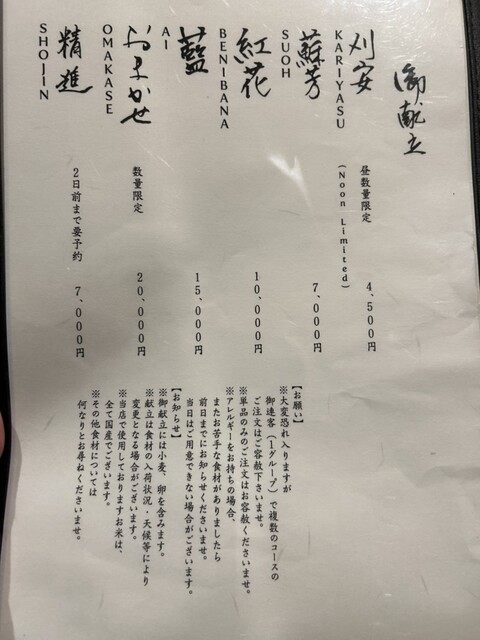 御献立
刈安
KARIYASU
昼数量限定
(Noon Limited)
4、500円
蘇芳
SUOH
7、000円
紅花
BENIBANA
10、000円
藍
AI
15、000円
おまかせ
OMAKASE
数量限定
20、000円
精進
SHOJIN
2日前まで要予約
7、000円
【お願い】
※大変恐れ入りますが
御連客（1グループ）で複数のコースの
ご注文はご容赦下さいませ。
※単品のみのご注文はお容赦くださいませ。
※アレルギーをお持ちの場合、
またお苦手な食材がありましたら
前日までにお知らせくださいませ。
当日はご用意できない場合がございます。
【お知らせ】
※御献立には小麦、卵を含みます。
※献立は食材の入荷状況・天候等により
変更となる場合がございます。
※当店で使用しておりますお米は、
全て国産でございます。
※その他食材については
何なりとお尋ねくださいませ。